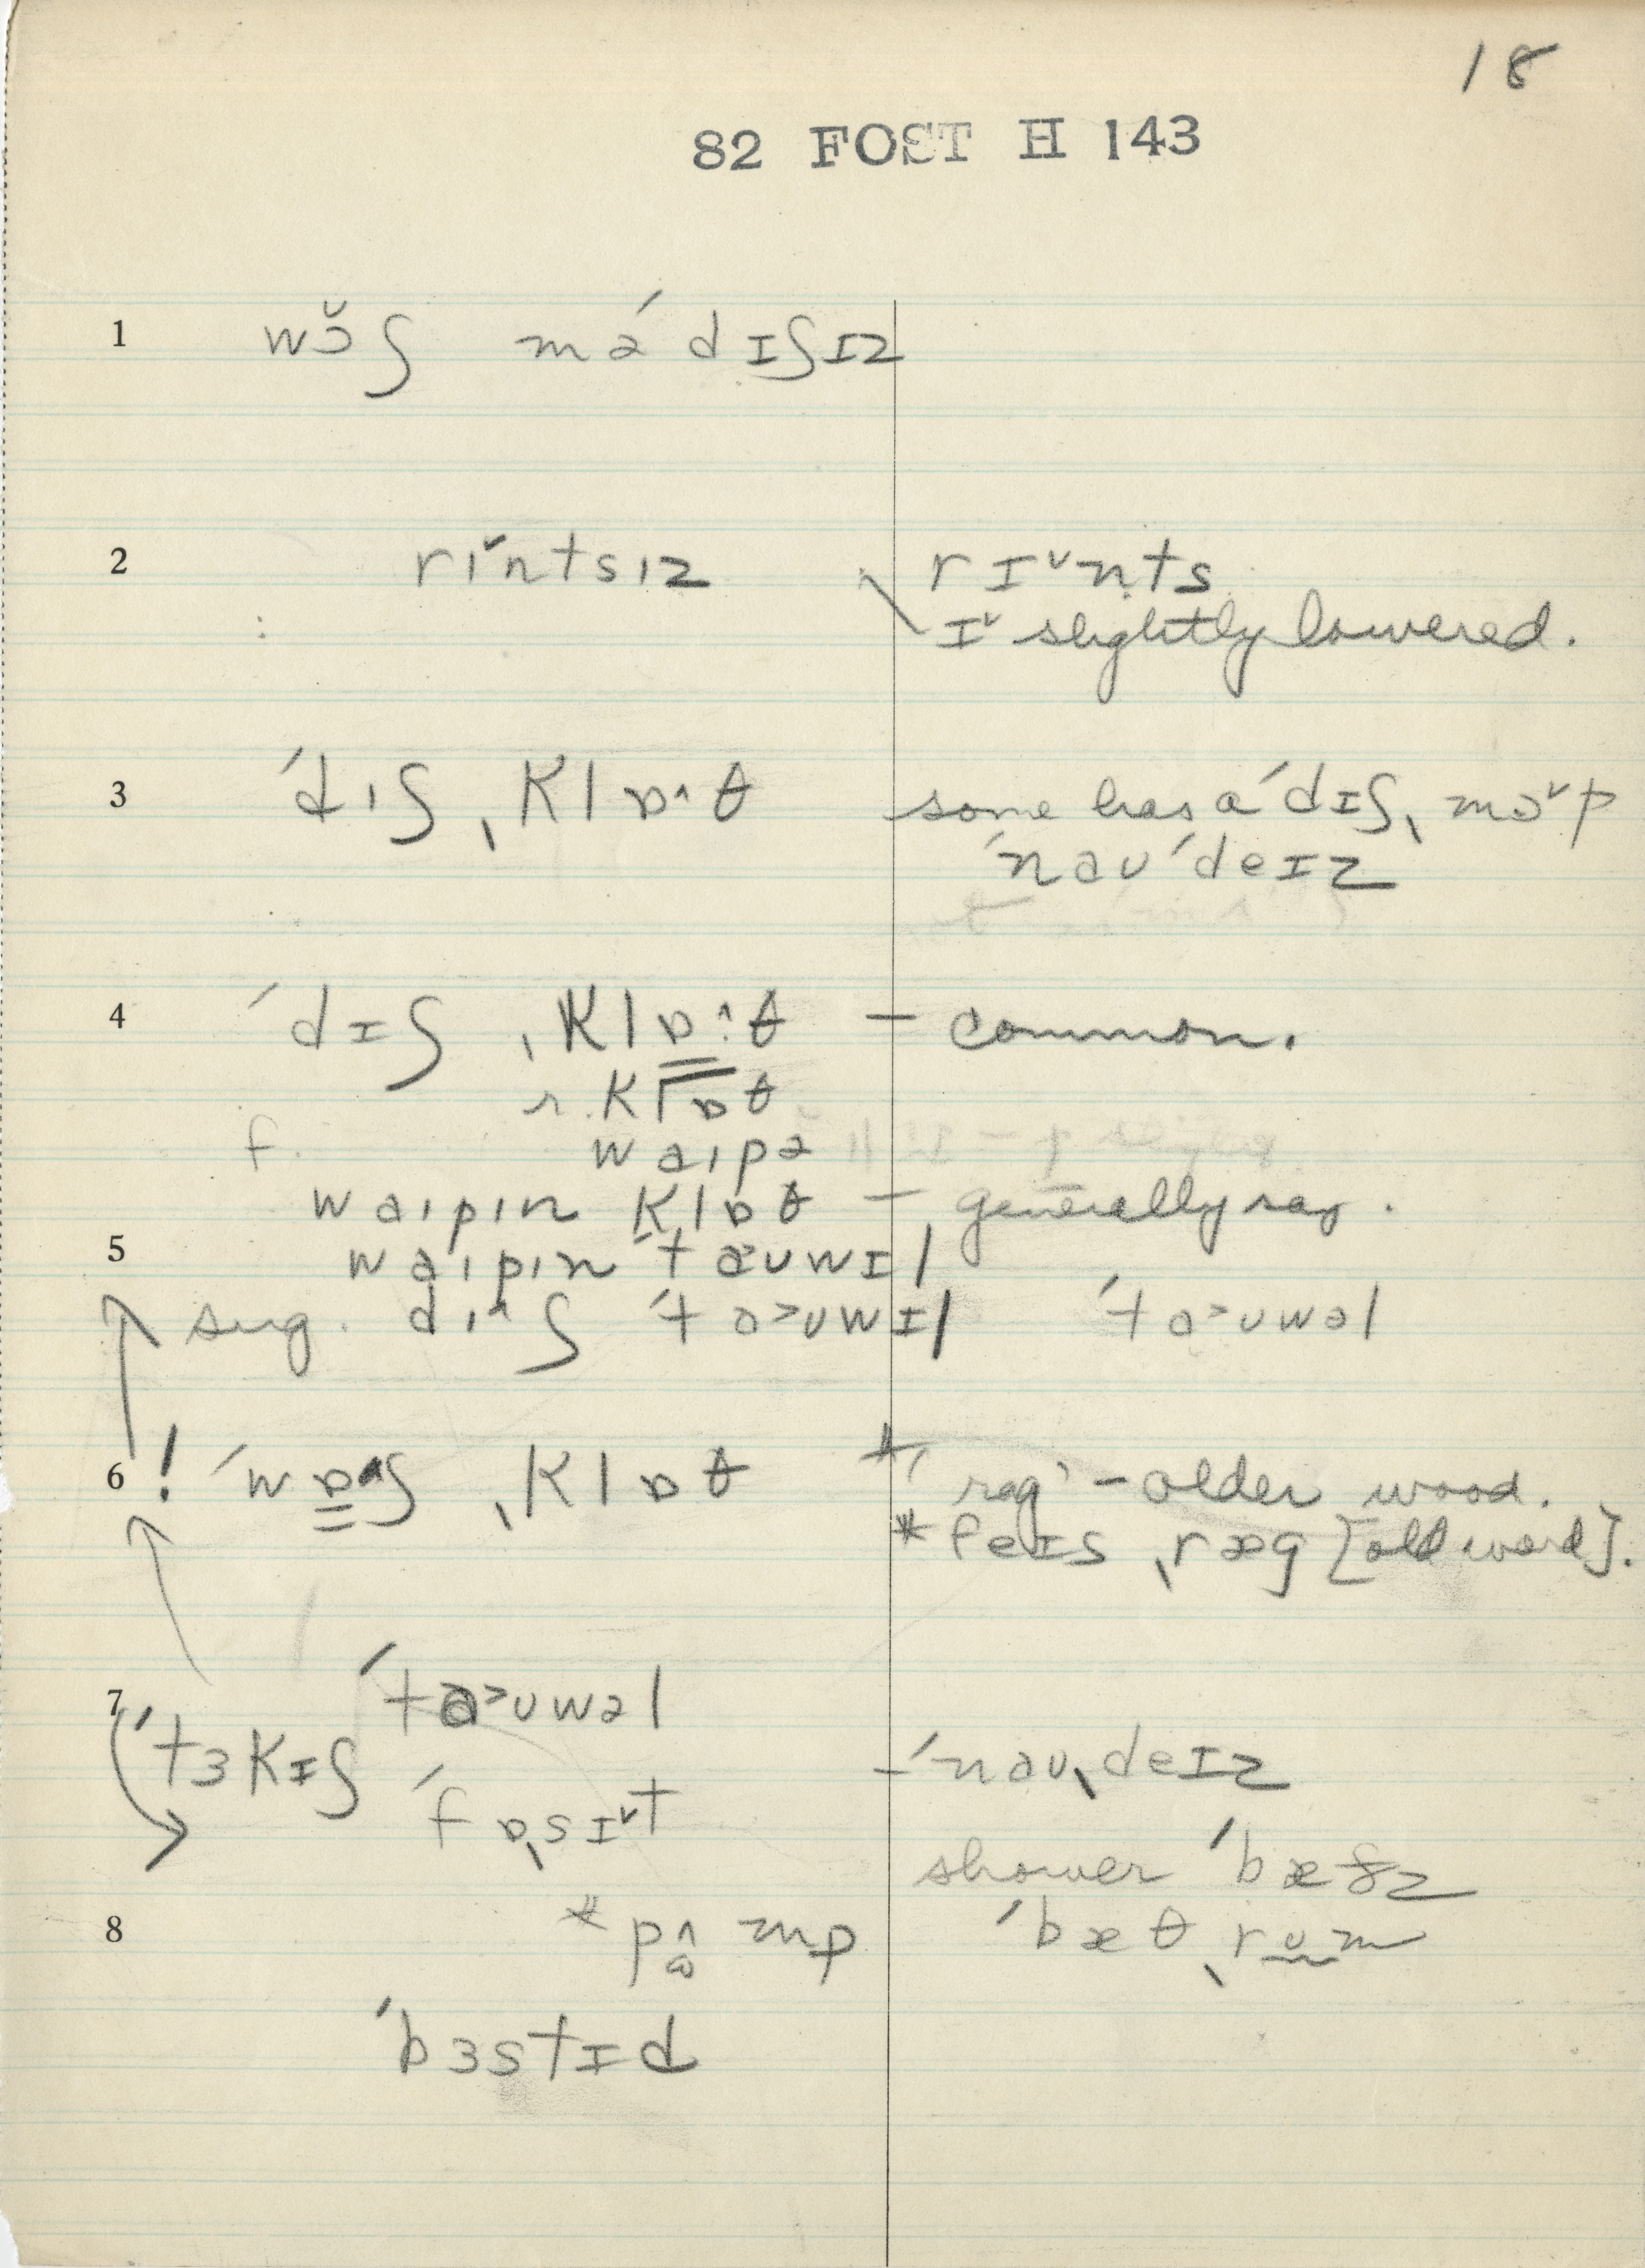 18
82 FOST H 143
1 wɔ̆ʃ mə́ dɪʃɪz
2 rɪˇntsɪz rɪˇnts
ɪˇ slightly lowered.
3 ˈdɪʃˌklɒ^θ some has a ˈdɪʃˌmɔˇp
ˈnaʊˈdeɪz
4 ˈdɪʃ ˌklɒ^·θ – common.
r. klɒθ
f. waɪpə
waɪpɪn klɒθ – generally say.
5 waɪpɪn ˈtaʊwɪl
sug. dɪ^ʃ ˈta>ʊwɪl ˈta>ʊwəl
6 ! ˈwɒ^ʃ ˌklɒθ * 'rag' – older word.
* feɪsˌræg [old word].
7 ˈta>ʊwəl
ˈtɜkɪʃ – ˈnaʊˌdeɪz
ˈfɒˌsɪˇt
shower ˈbæðz
8 * pɷ̂mp ˈbæθˌrum
ˈbɜstɪd